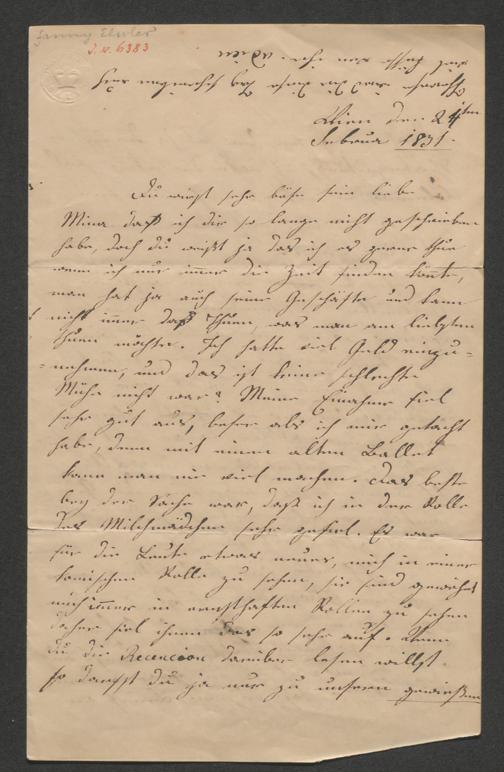 Fanny Elssler
I. N. 6383
Wien den 24ten
Februar 1831.
Du wirst sehr böse sein liebe
Mina daß ich dir so lange nicht geschrieben
habe, doch du weißt ja das ich es gerne thue
wenn ich nur immer die Zeit finden könte,
man hat ja auch seine Geschäfte und kann
nicht immer daß thuen, was man am liebsten
thuen möchte. Ich hatte viel Geld einzu-
-nehmen, und das ist keine schlechte
Mühe nicht war? Meine Einahme fiel
sehr gut aus, beßer als ich mir gedacht
habe, denn mit einem alten Ballet
kann man nie viel machen. Das beste
bey der Sache war, daß ich in der Rolle
des Milchmädchen sehr gefiel. Es war
für die Leute etwas neues, mich in einer
komischen Rolle zu sehen, sie sind gewöhnt
mich immer in ernsthaften Rollen zu sehen
daher fiel ihnen das so sehr auf. Wenn
du die Recension darüber lesen willst
so darfst du ja nur zu unseren